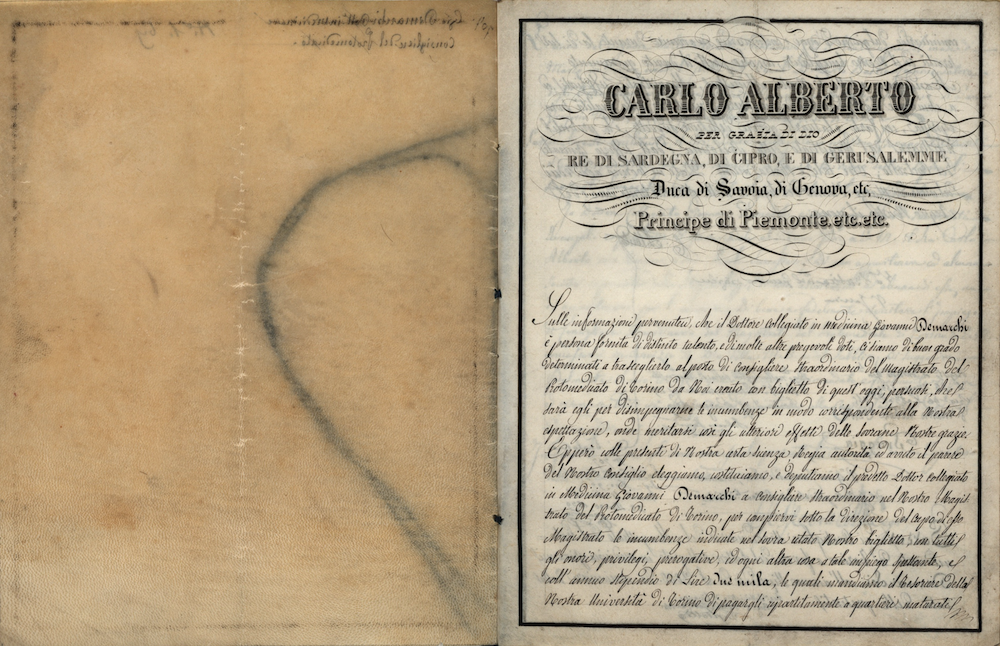 CARLO ALBERTO
PER GRAZIA DI DIO
RE DI SARDEGNA, DI CIPRO, E DI GERUSALEMME
Duca di Savoia, di Genova, etc,
Principe di Piemonte. etc. etc.
Sulle informazioni pervenuteci, che il Dottore collegiato in medicina Giovanni Demarchi
è persona fornita di distinto talento, e di molte altre pregevoli doti, Ci siamo di buon grado
determinati a trasceglierlo al posto di Consigliere straordinario del Magistrato del
Protomedicato di Torino da Noi creato con biglietto di quest'oggi, persuasi, che
sarà egli per disimpegnarne le incumbenze in modo corrispondente alla Nostra
espettazione, onde meritarsi così gli ulteriori effetti delle sovrane Nostre grazie.
Epperò colle presenti di Nostra certa scienza, Regia autorità ed avuto il parere
del Nostro Consiglio eleggiamo, costituiamo, e deputiamo il predetto Dottor collegiato
in Medicina Giovanni Demarchi a Consigliere straordinario nel Nostro Magis-
trato del Protomedicato di Torino, per compiervi sotto la direzione del Capo d'esso
Magistrato le incumbenze indicate nel sovra citato Nostro biglietto, con tutti
gli onori, privilegi, prerogative, ed ogni altra cosa a tale impiego spettante, e
coll'annuo stipendio di Lire due mila, le quali mandiamo il Tesoriere della
Nostra Università di Torino di pagargli ripartitamente a quartiere maturato